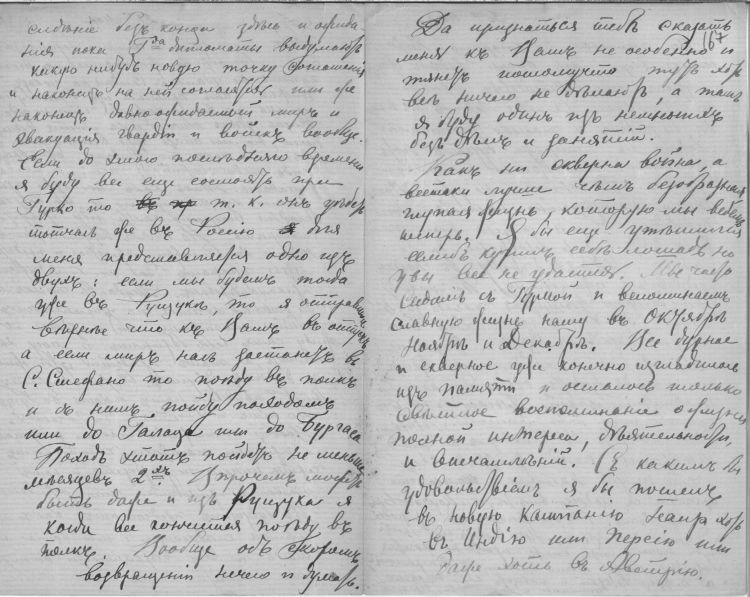 сидѣніе безъ конца здѣсь и ожида-
нія пока Гда дипломаты выдумаютъ
какую нибудь новую точку соглашенія
и наконецъ на ней согласятся или же
наконецъ давно ожидаемый миръ и
эвакуація гвардіи и войскъ вообще.
Если до этого послѣдняго времени
я буду все еще состоять при
Гурко то т. к. онъ уѣдетъ
тотчасъ же въ Россію для
меня представляется одно изъ
двухъ: если мы будемъ тогда
уже въ Рущукѣ, то я отправлюсь
вѣрнѣе что къ Вамъ въ отпускъ
а если миръ насъ застанетъ въ
С. Стефано то поѣду въ полкъ
и съ нимъ пойду походомъ
или до Галаца или до Бургаса
Походъ этотъ пойдетъ не меньше
мѣсяцевъ 2хъ. Впрочемъ можетъ
быть даже и изъ Рущука я
когда все кончится поѣду въ
полкъ. Вообще объ скоромъ
возвращеніи нечего и думать.
167
Да признаться тебѣ сказать
меня къ Вамъ не особенно и
тянетъ потому что тутъ хоть
весь ничего не дѣлаютъ, а тамъ
я буду одинъ изъ немногихъ
безъ дѣла и занятій.
Какъ ни скверна война, а
всетаки лучше чѣмъ безобразная
глупая жизнь, которую мы ведемъ
теперь. Я бы еще утѣшился
еслибъ купилъ себѣ лошадь но
увы все не удается. Мы часто
сидимъ съ и вспоминаемъ
славную жизнь нашу въ Октябрѣ
Ноябрѣ и Декабрѣ. Все бурное
и скверное уже конечно изгладилось
изъ памяти и осталось только
свѣтлое воспоминаніе о жизни
полной интереса, дѣятельности,
и впечатлѣній. Съ какимъ бы
удовольствіемъ я бы пошелъ
въ новую Кампанію хоть
въ Индію или Персію или
даже хоть въ Австрію.